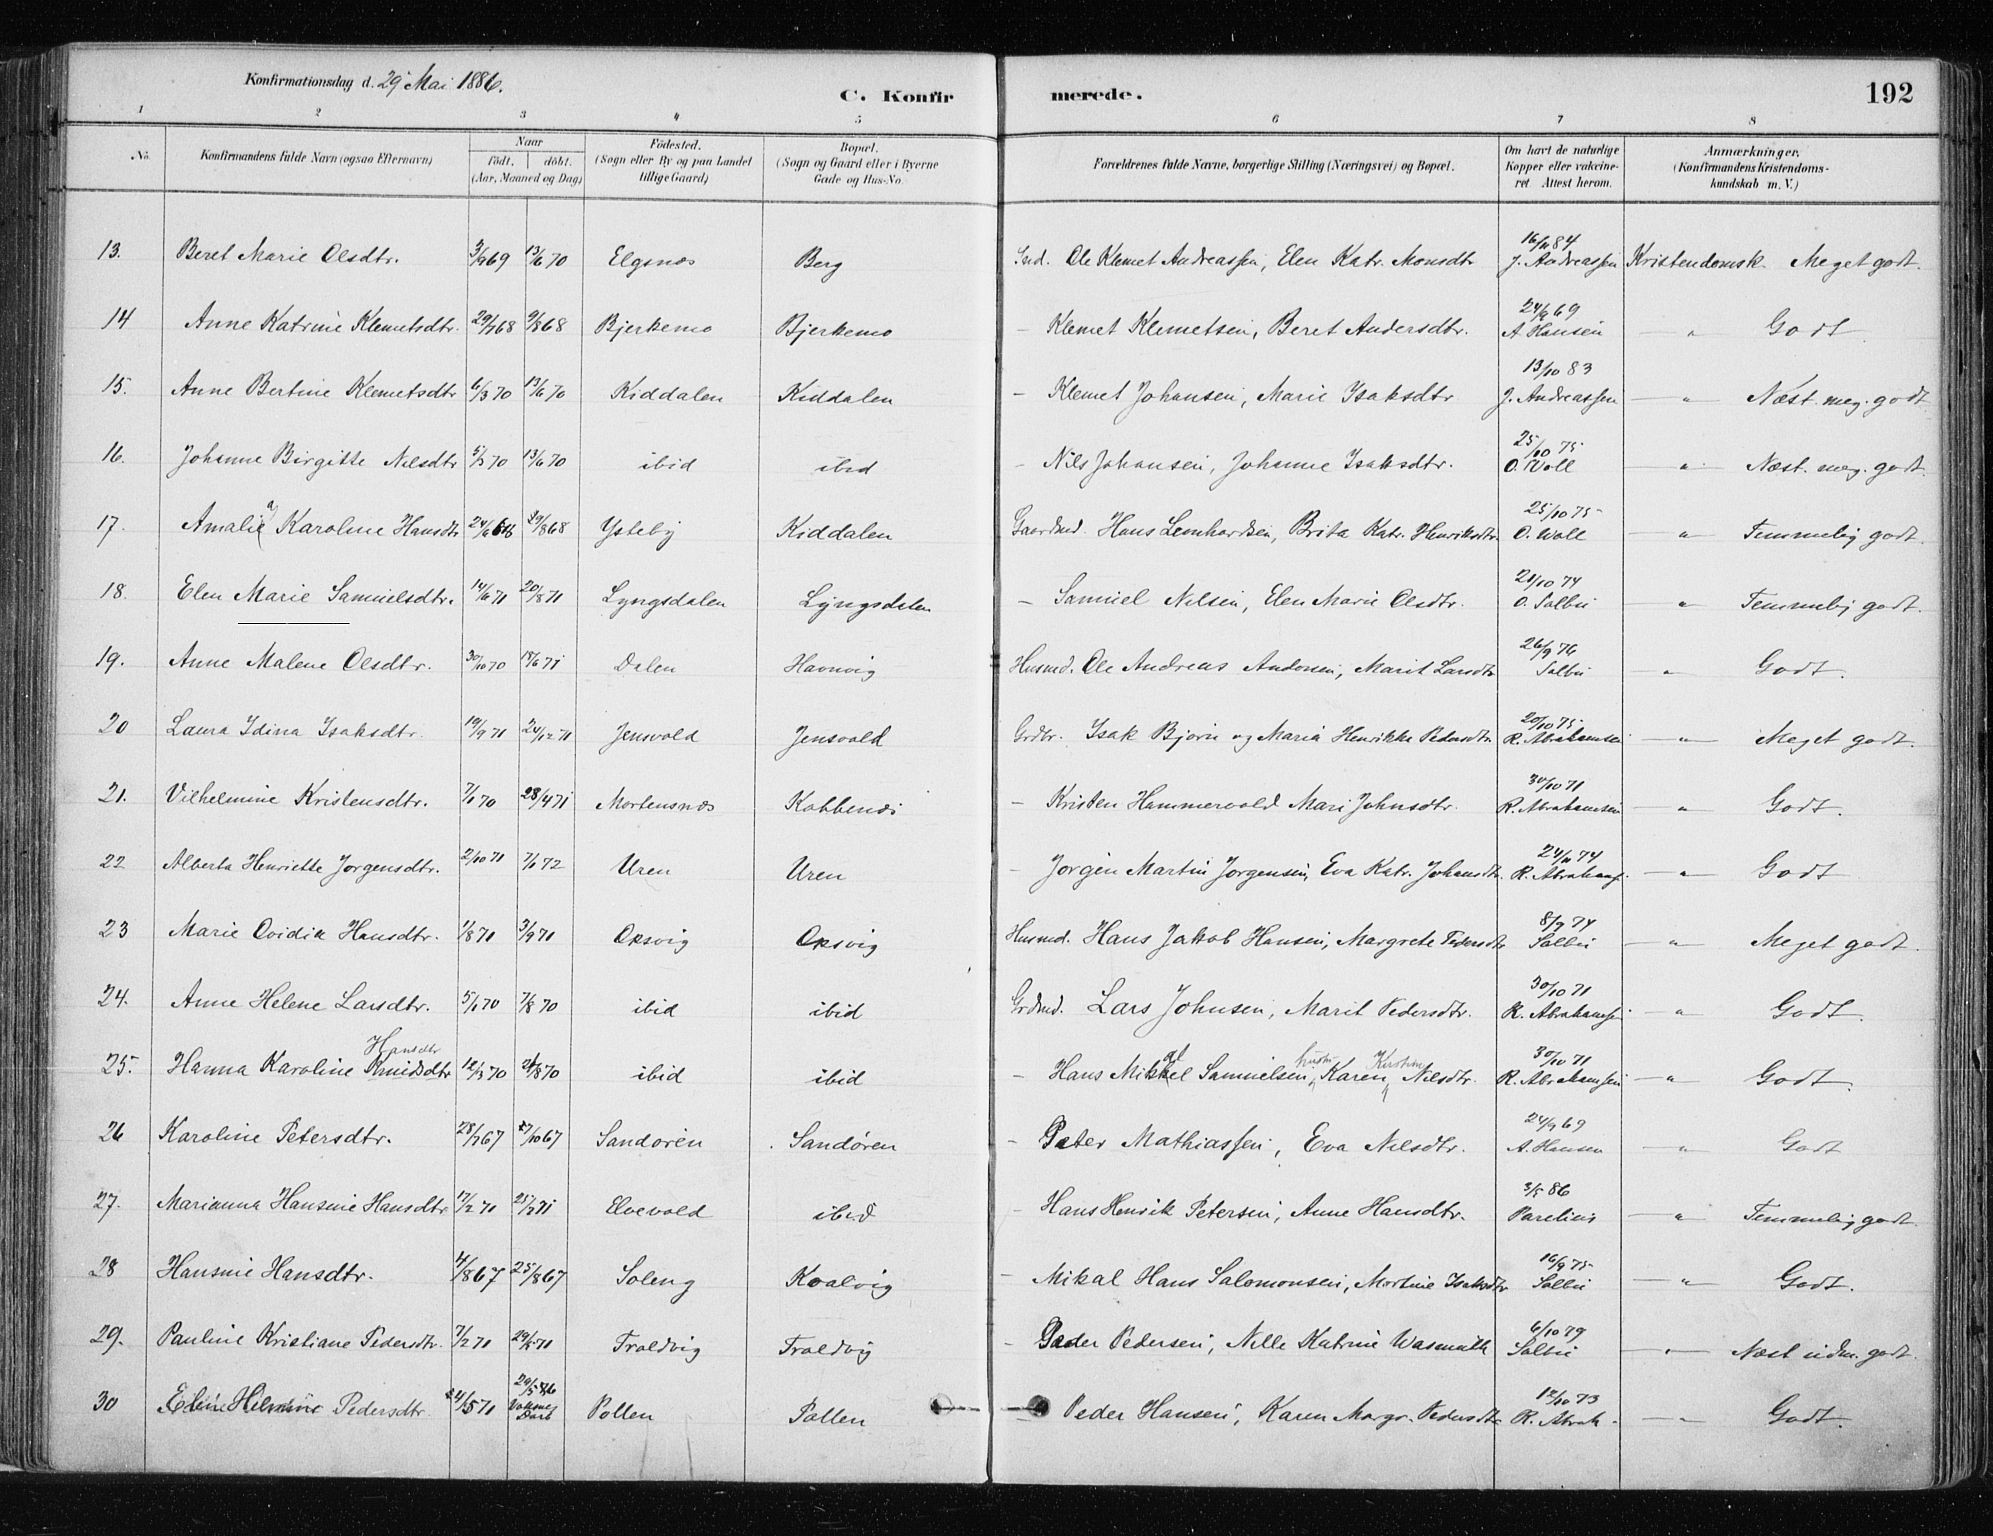 Konfirmationsdag d. 29 Mai 1886.
C. Konfirmerede.
192
1 2 3 4 5 6 7 8
No.
Konfirmandens fulde Navn (ogsaa Efternavn)
Naar
födt. döbt.
(Aar, Maaned og Dag)
Födested.
(Sogn eller By og paa Landet
tillige Gaard)
Bopæl.
(Sogn og Gaard eller i Byerne
Gade og Hus-No.
Forældrenes fulde Navne, borgerlige Stilling (Næringsvei) og Bopæl.
Om havt de naturlige
Kopper eller vakcine-
ret Attest herom.
Anmærkninger.
(Konfirmandens Kristendoms-
kundskab m. V.)
13. Beret Marie Olsdtr. 13/6 70 Elgsnæs Berg Ole Klemet Andreassen, Elen Katr. Monsdtr 84 J. Andreassen Kristendomsk. Meget godt.
14 Anne Katrine Klemetsdtr. 29/7 68 9/8 68 Bjerkemo Bjerkemo - Klemet Klemetsen, Beret Andersdtr. 24/9 69 A. Hansen — " Godt
15. Anne Bertine Klemetsdtr 6/3 70 13/6 70 Kiddalen Kiddalen - Klemet Johansen, Marie Isaksdtr 13/10 83 J. Andreassen — " Næst. meg. godt
16. Johanne Birgitte Nilsdtr 13/6 70 ibid ibid - Nils Johansen, Johanne Isaksdtr. 25/10 75 O. Woll — " Næst. meg. godt.
17. Amalia Karoline Hansdtr Ysteby Kiddalen Gaardmd. Hans Leonhardsen, Brita Katr. Henriksdtr. 25/10 75 O. Woll — " Temmelig godt.
18. Elen Marie Samuelsdtr. 14/6 71 20/8 71 Lyngsdalen Lyngsdalen - Samuel Nilsen, Elen Marie Olsdtr. 21/10 74 O. Solbu — " Temmelig godt.
19. Anne Malene Olsdtr. 30/10 70 18/6 71 Dalen Havnvig Husmd. Ole Andreas Andonsen, Marit Larsdtr 26/9 76 Solbu — " Godt.
20 Laura Idina Isaksdtr. 19/9 71 24/12 71 Jensvold Jensvold Grdbr. Isak Bjorn og Maria Henrikke Pedersdtr. 20/10 75 R. Abrahamsen — " Meget godt.
21. Vilhelmine Kristensdtr. 7/1 70 28/4 71 Mortensnæs Kobbenæs - Kristen Hammervold Mari Johnsdtr. 30/10 71 R. Abrahamsen — " Godt.
22 Alberta Henriette Jorgensdtr. 2/10 71 7/1 72 Uren Uren - Jorgen Martin Jorgensen, Eva Katr. Johansdtr. 74 R. Abrahams. — " Godt
23 Marie Ovidia Hansdtr. 1/8 71 3/9 71 Oxsvig Oxsvig Husmd. Hans Jakob Hansen, Margrete Pedersdtr 8/9 74 Solbu — " Meget godt.
24. Anne Helene Larsdtr. 5/1 70 7/8 70 ibid ibid Grdmd. Lars Johnsen, Marit Pedersdtr. 30/10 71 R. Abrahamsen — " Godt.
Hansdtr
25. Hanna Karoline Knudsdtr 12/3 70 ibid ibid - Hans Mikkel Samuelsen, hustr. Karen Kirstine Nilsdtr. 30/10 71 R. Abrahamsen — " Godt.
26 Karoline Petersdtr. 28/7 67 27/10 67 Sandoren Sandören - Peter Mathiassen, Eva Nilsdtr. 24/9 69 A. Hansen — " Godt
27. Marianna Hansine Hansdtr 17/2 70 Elvevold ibid - Hans Henrik Petersen, Anne Hansdtr. 3/5 86 Parelius — " Temmelig godt.
28 Hansine Hansdtr. 4/8 67 25/8 67 Soleng Kvalvig - Mikal Hans Salomonsen, Mortine Isaksdtr 16/9 75 Solbu — " Godt.
29. Pauline Kristiane Pedersdtr. 7/2 71 Troldvig Troldvig - Peder Pedersen, Nille Katrine Wasmuth 6/10 79 Solbu — " Næst udm. godt.
30 Eline Helmine Pedersdtr. 24/5 71 29/5 86 Pollen Pollen - Peder Hansen, Karen Margr. Pedersdtr 12/10 73 R. Abrah. — " Godt.